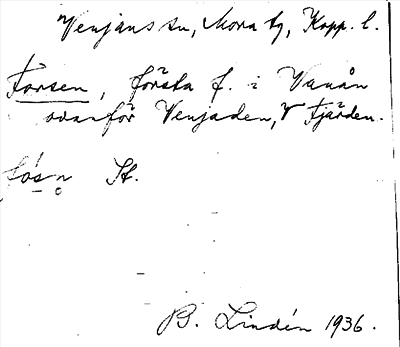 Venjans sn, Mora tg, Kopp. l.
Forsen, första f. i Vanån
ovanför Venjaden, V Fjärden.
fósn̥ St.
B. Lindén 1936.